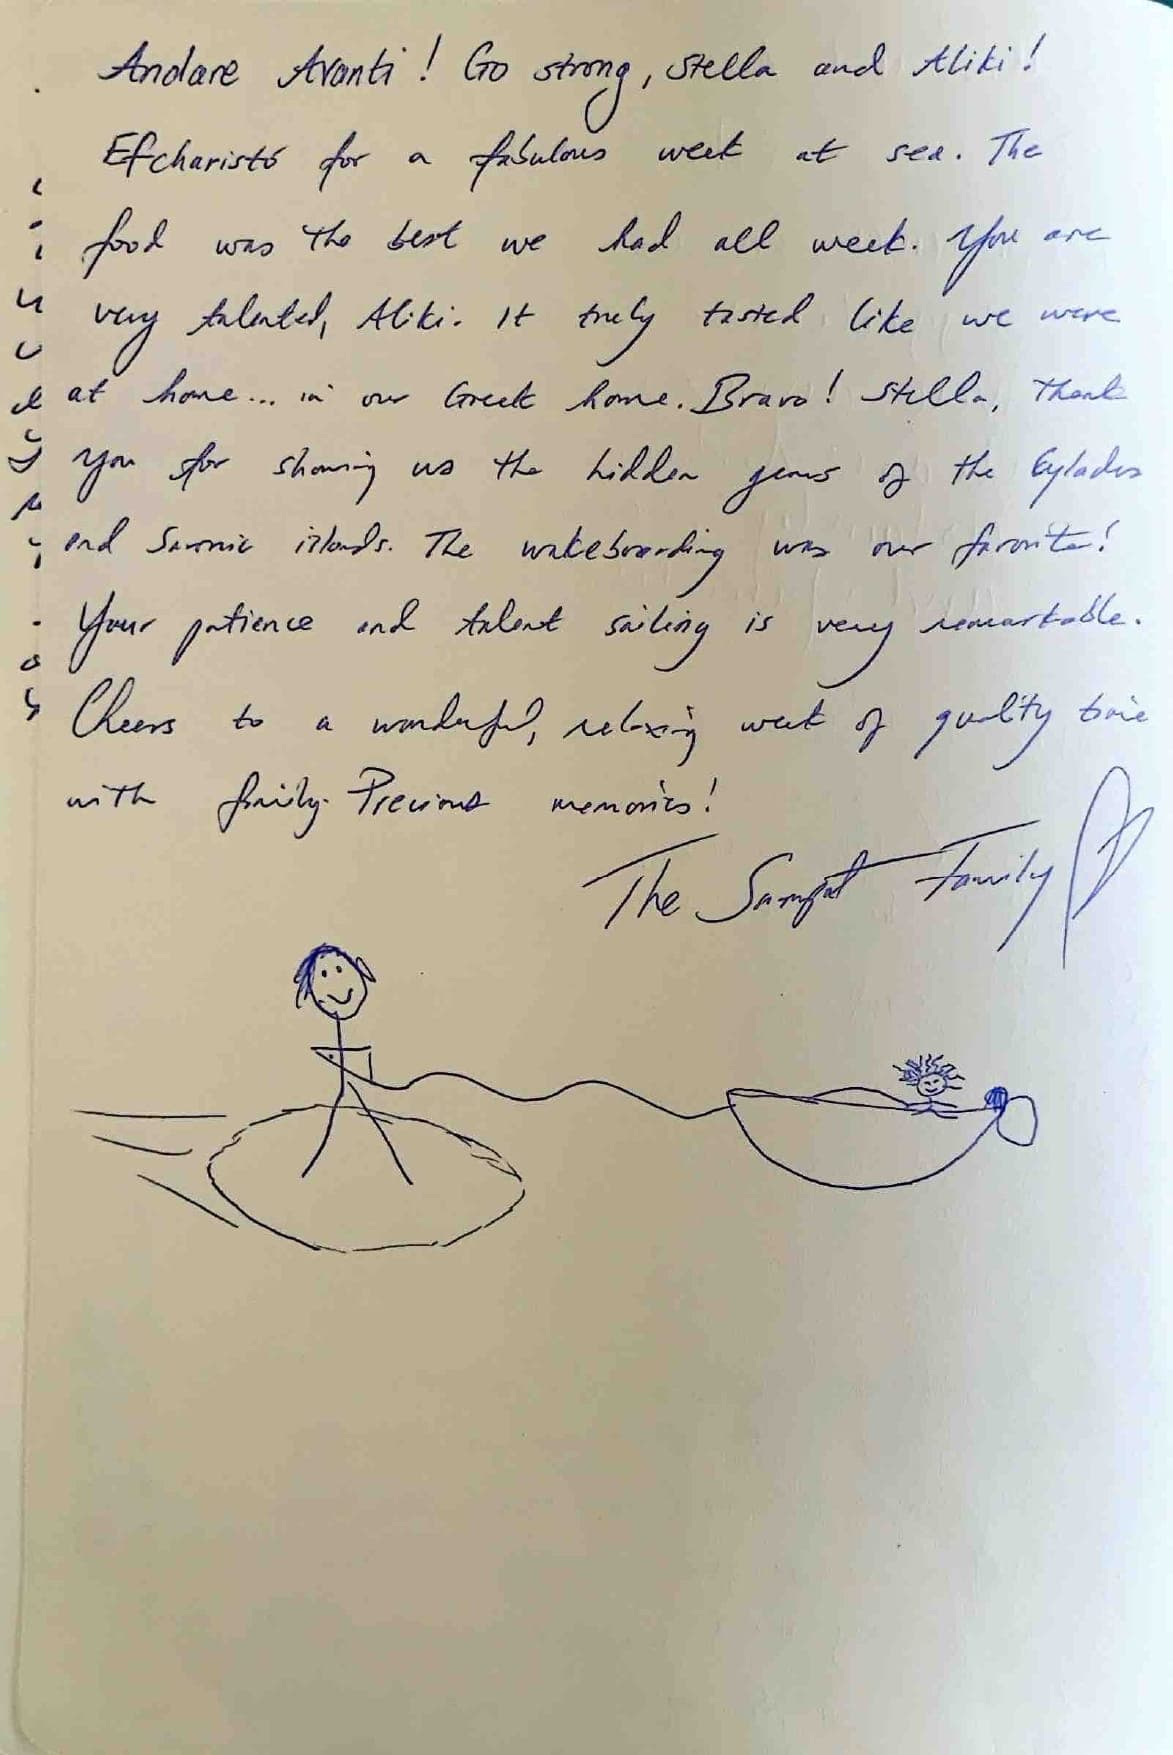 Andare Avanti! Go strong, Stella and Aliki!
Efcharistó for a fabulous week at sea. The
food was the best we had all week. You are
very talented, Aliki. It truly tasted like we were
at home... in our Greek home. Bravo! Stella, Thank
you for showing us the hidden gems of the Cylades
and Saronic islands. The wakeboarding was our favorite!
Your patience and talent sailing is very remarkable.
Cheers to a wonderful, relaxing week of quality time
with family. Precious memories!
The Sampat Family